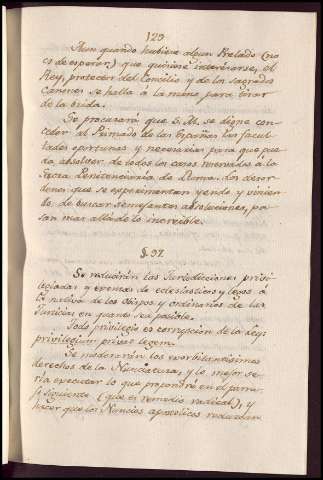 129
Aun quando hubiese algun Prelado (no
es de esperar) que quisiese interesarse, el
Rey, protector del Concilio y de los sagrados
Canones se halla à la mano para tirar
de la brida.
Se procurará que S. M. se digne con-
ceder al Primado de las Españas las facul-
tades oportunas y necesarias para que pue-
da absolver de todos los casos reservados à la
Sacra Penitenciaria de Roma. Los desor-
denes que se experimentan yendo y vinien-
do de buscar semejantes absoluciones, pa-
san mas allá de lo increible.
§. 97.
Se reducirán las Jurisdicciones privi-
legiadas y exentas de eclesiasticos y legos à
la nativa de los Obispos y ordinarios de las
Justicias en quanto sea posible.
Todo privilegio es corrupcion de la Ley:
privilegium privat legem.
Se moderarán los exorbitantisimos
derechos de la Nunciatura, y lo mejor se-
ria executar lo que propondré en el parra-
fo siguiente (que es remedio radical), y
hacer que los Nuncios apostolicos reduzcan